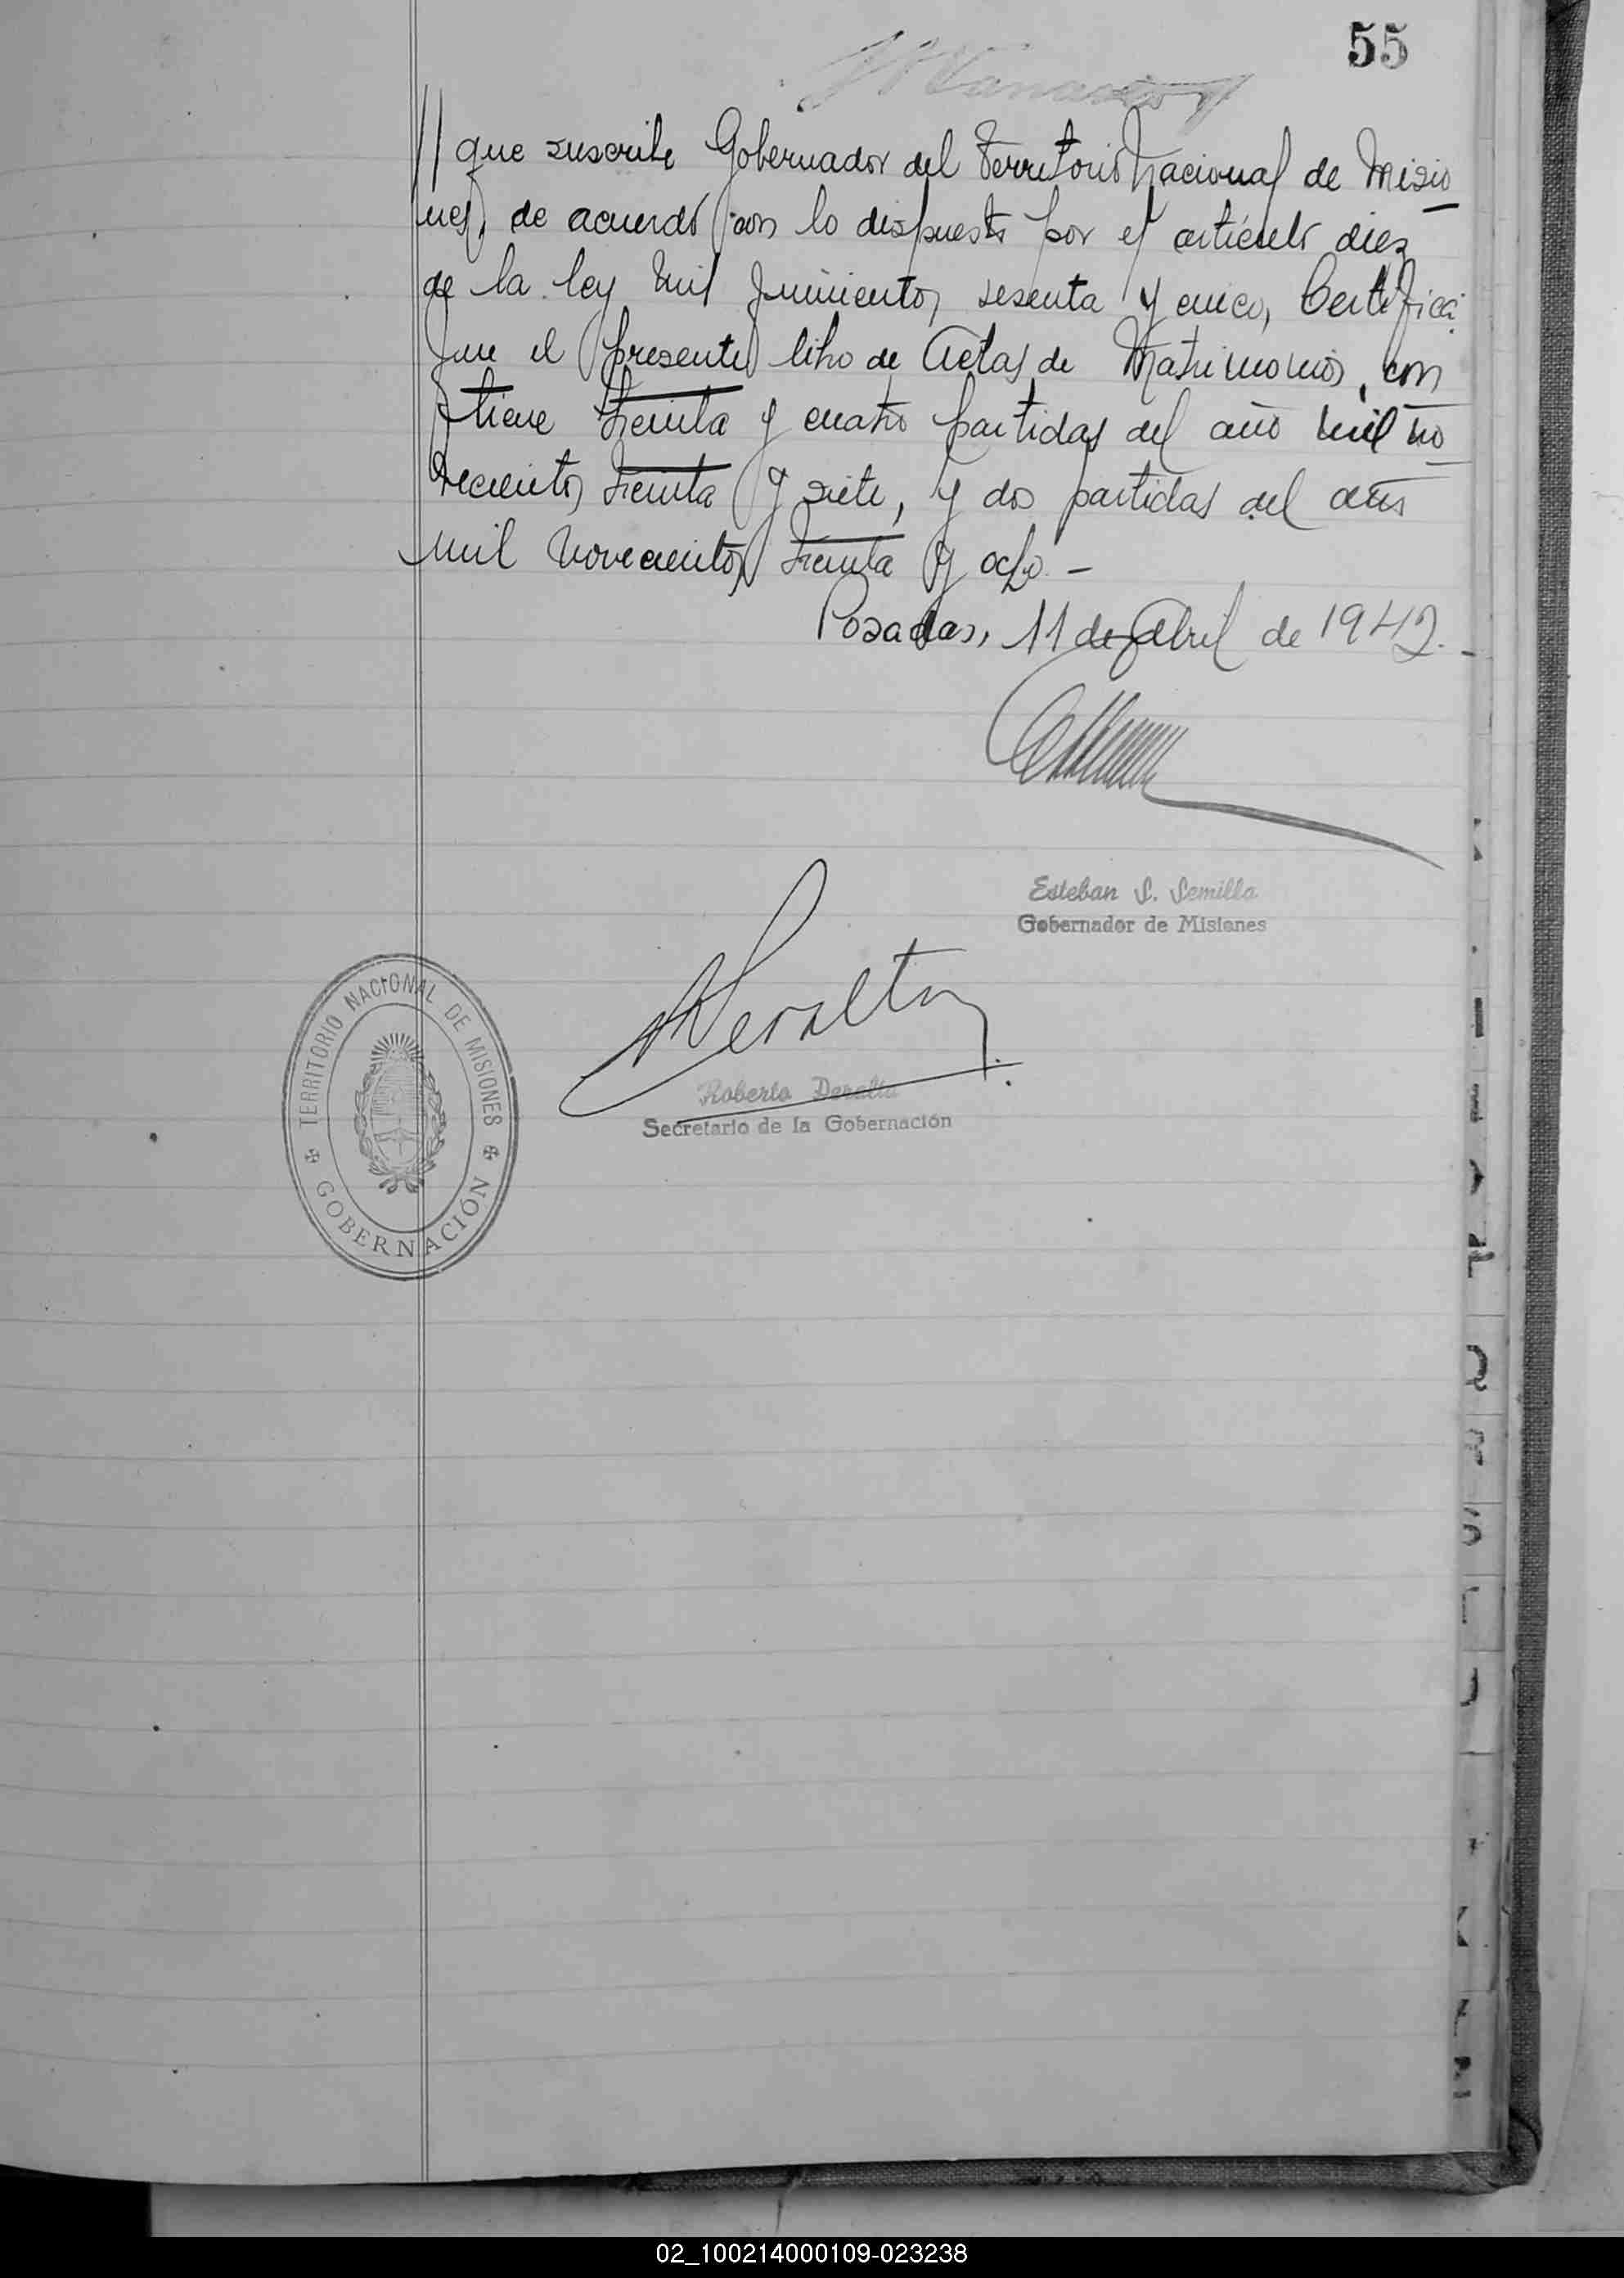 55
// que suscribe Gobernador del Territorio Nacional de Misio
nes, de acuerdo con lo dispuesto por el artículo diez
de la ley mil quinientos sesenta y cinco, Certifica:
que el presente libro de Actas de Matrimonios, con
tiene treinta y cuatro partidas del año mil no
vecientos treinta y siete, y dos partidas del año
mil novecientos treinta y ocho. -
Posadas, 11 de Abril de 1942. -
Esteban S. Semilla
Gobernador de Misiones
RPeralta
Roberto Peralta
Secretario de la Gobernación
TERRITORIO NACIONAL DE MISIONES
GOBERNACIÓN
02_100214000109-023238